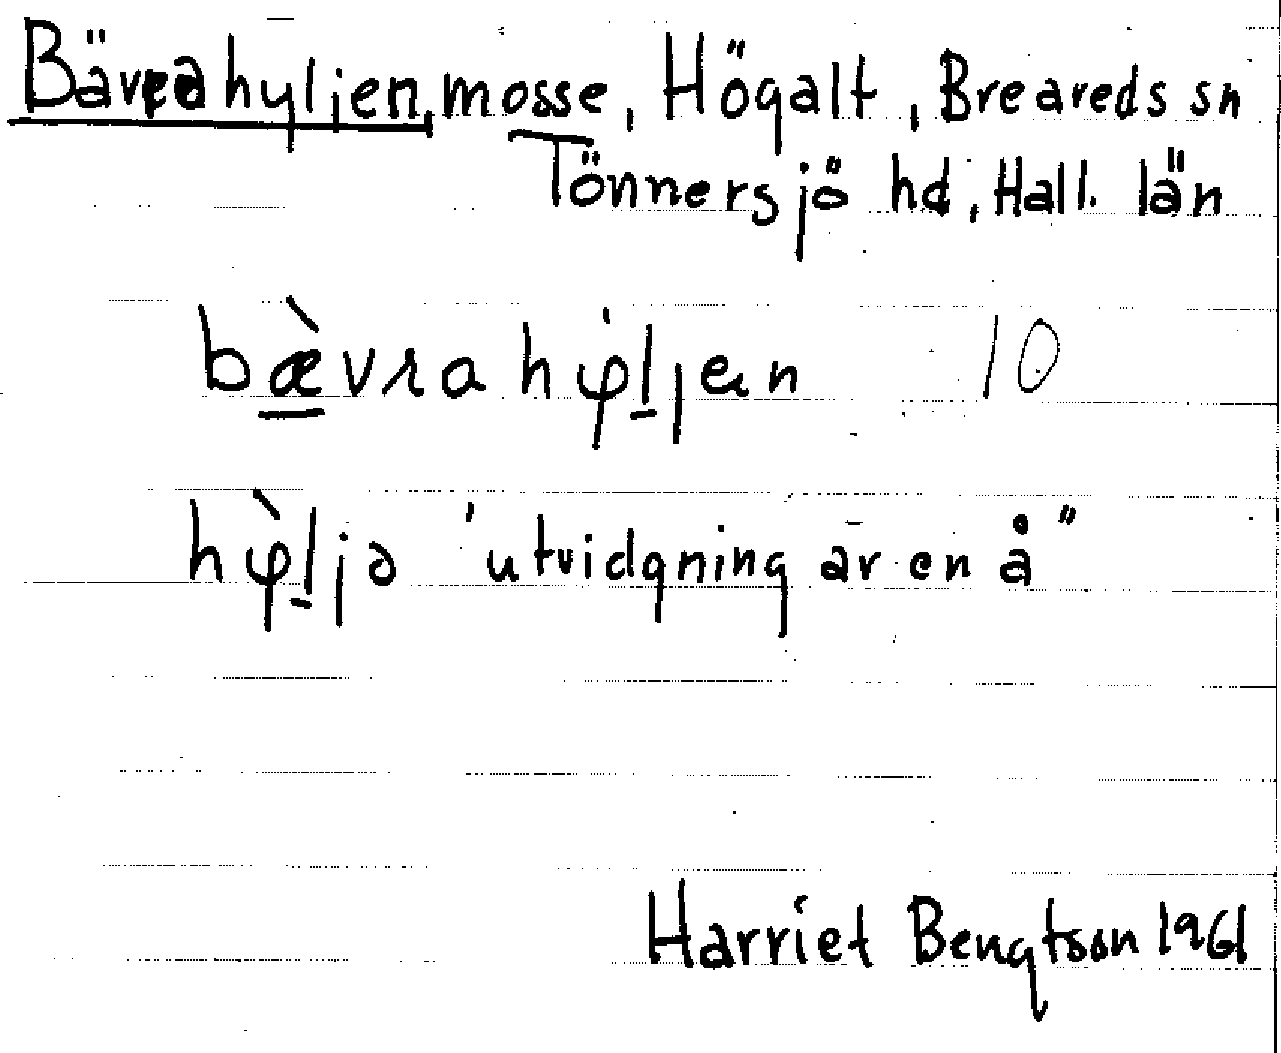 Bävrahyljen, mosse, Högalt, Breareds sn
Tönnersjö hd, Hall. län
bæ̀vrahφ́ljen 10
hφ̀ljə 'utvidgning av en å"
Harriet Bengtson 1961